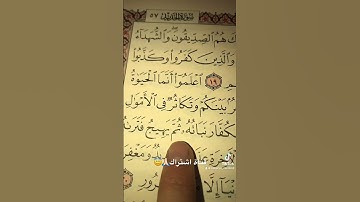 سُورَةُ الحَدِيد ٥٧
كَ هُمُ الصِّدِّيقُونَ وَالشُّهَدَاءُ
وَالَّذِينَ كَفَرُوا وَكَذَّبُوا
١٩ اعْلَمُوا أَنَّمَا الْحَيَوٰةُ
بَيْنَكُمْ وَتَكَاثُرٌ فِي الْأَمْوَالِ
الْكُفَّارَ نَبَاتُهُ ثُمَّ يَهِيجُ فَتَرَىٰهُ
اشتراك
وَمَغْفِرَ
إِلَّا